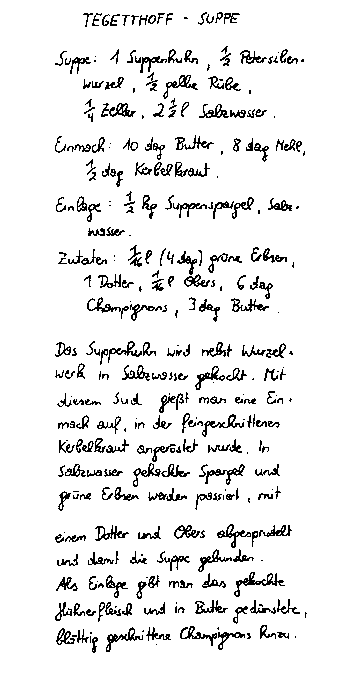 TEGETTHOFF - SUPPE
Suppe: 1 Suppenhuhn, 1/2 Petersilien-
wurzel, 1/2 gelbe Rübe,
1/4 Zeller, 2 1/2 l Salzwasser.
Einmach: 10 dag Butter, 8 dag Mehl,
1/2 dag Kerbelkraut.
Einlage: 1/2 kg Suppenspargel, Salz-
wasser.
Zutaten: 1/16 l (4 dag) grüne Erbsen,
1 Dotter, 1/16 l Obers, 6 dag
Champignons, 3 dag Butter.
Das Suppenhuhn wird nebst Wurzel-
werk in Salzwasser gekocht. Mit
diesem Sud gießt man eine Ein-
mach auf, in der feingeschnittenes
Kerbelkraut angeröstet wurde. In
Salzwasser gekochter Spargel und
grüne Erbsen werden passiert, mit
einem Dotter und Obers abgesprudelt
und damit die Suppe gebunden.
Als Einlage gibt man das gekochte
Hühnerfleisch und in Butter gedünstete,
blättrig geschnittene Champignons hinzu.